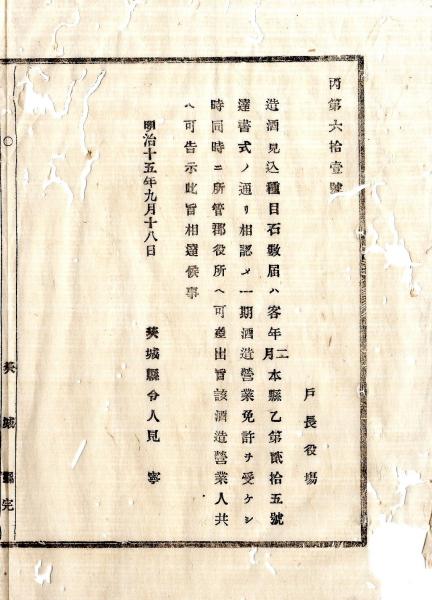 丙第六拾壹號
戸長役塲
造酒見込種目石數届ハ客年二月本縣乙第貳拾五號
達書式ノ通リ相認メ一期酒造營業免許ヲ受ケシ
時同時ニ所管郡役所ヘ可差出旨該酒造營業人共
ヘ可告示此旨相達候事
明治十五年九月十八日
茨城縣令人見寧
〇
茨城縣完